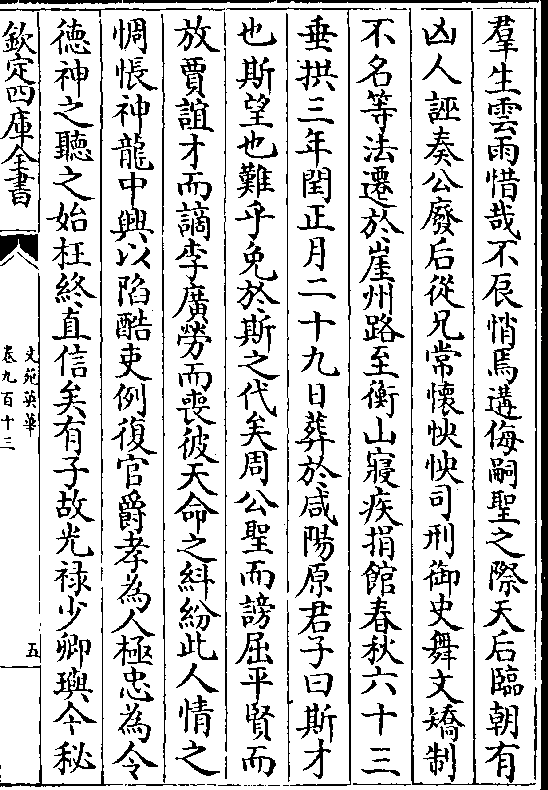 羣生雲雨惜哉不辰悄焉遘侮嗣聖之際天后臨朝有
凶人誣奏公廢后從兄常懷怏怏司刑御史舞文矯制
不名等法遷於崖州路至衡山寢疾捐館春秋六十三
垂拱三年閏正月二十九日葬於咸陽原君子曰斯才
也斯望也難乎免於斯之代矣周公聖而謗屈平賢而
放賈誼才而謫李廣勞而喪彼天命之糾紛此人情之
惆悵神龍中興以陷酷吏例復官爵孝為人極忠為令
徳神之聽之始枉終直信矣有子故光禄少卿璵今秘
欽定四庫全書
文苑英華
卷九百十三
五